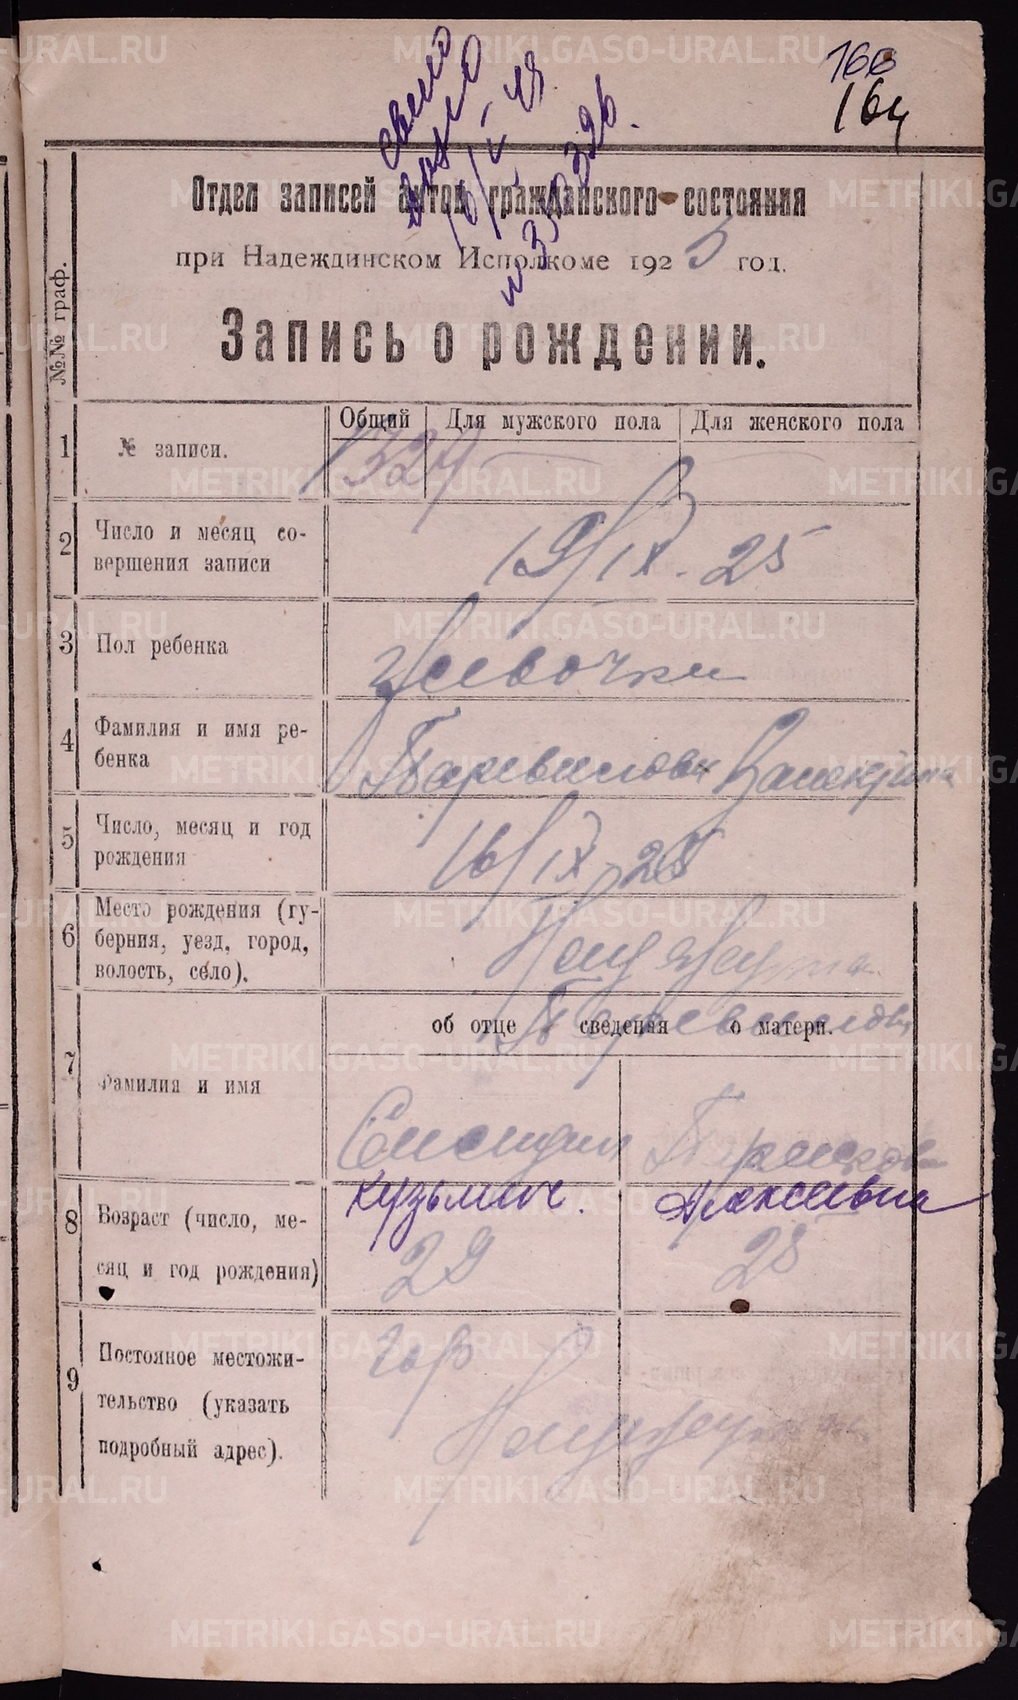 166
164
Отдел записей актов гражданского состояния
при Надеждинском Исполкоме 1925 год.
Запись о рождении.
№№ граф.
Общий Для мужского пола Для женского пола
1 № записи. 1327
2 Число и месяц со-
вершения записи
19/IX. 25
3 Пол ребенка
девочки
4 Фамилия и имя ре-
бенка
5 Число, месяц и год
рождения
16/IX 25
6 Место рождения (гу-
берния, уезд, город,
волость, село).
об отце сведения о матери.
7 Фамилия и имя
Кузьмич. Алексеевна
8 Возраст (число, ме-
сяц и год рождения)
29 28
9 Постояное местожи-
тельство (указать
подробный адрес).
гор
METRIKI.GASO-URAL.RU